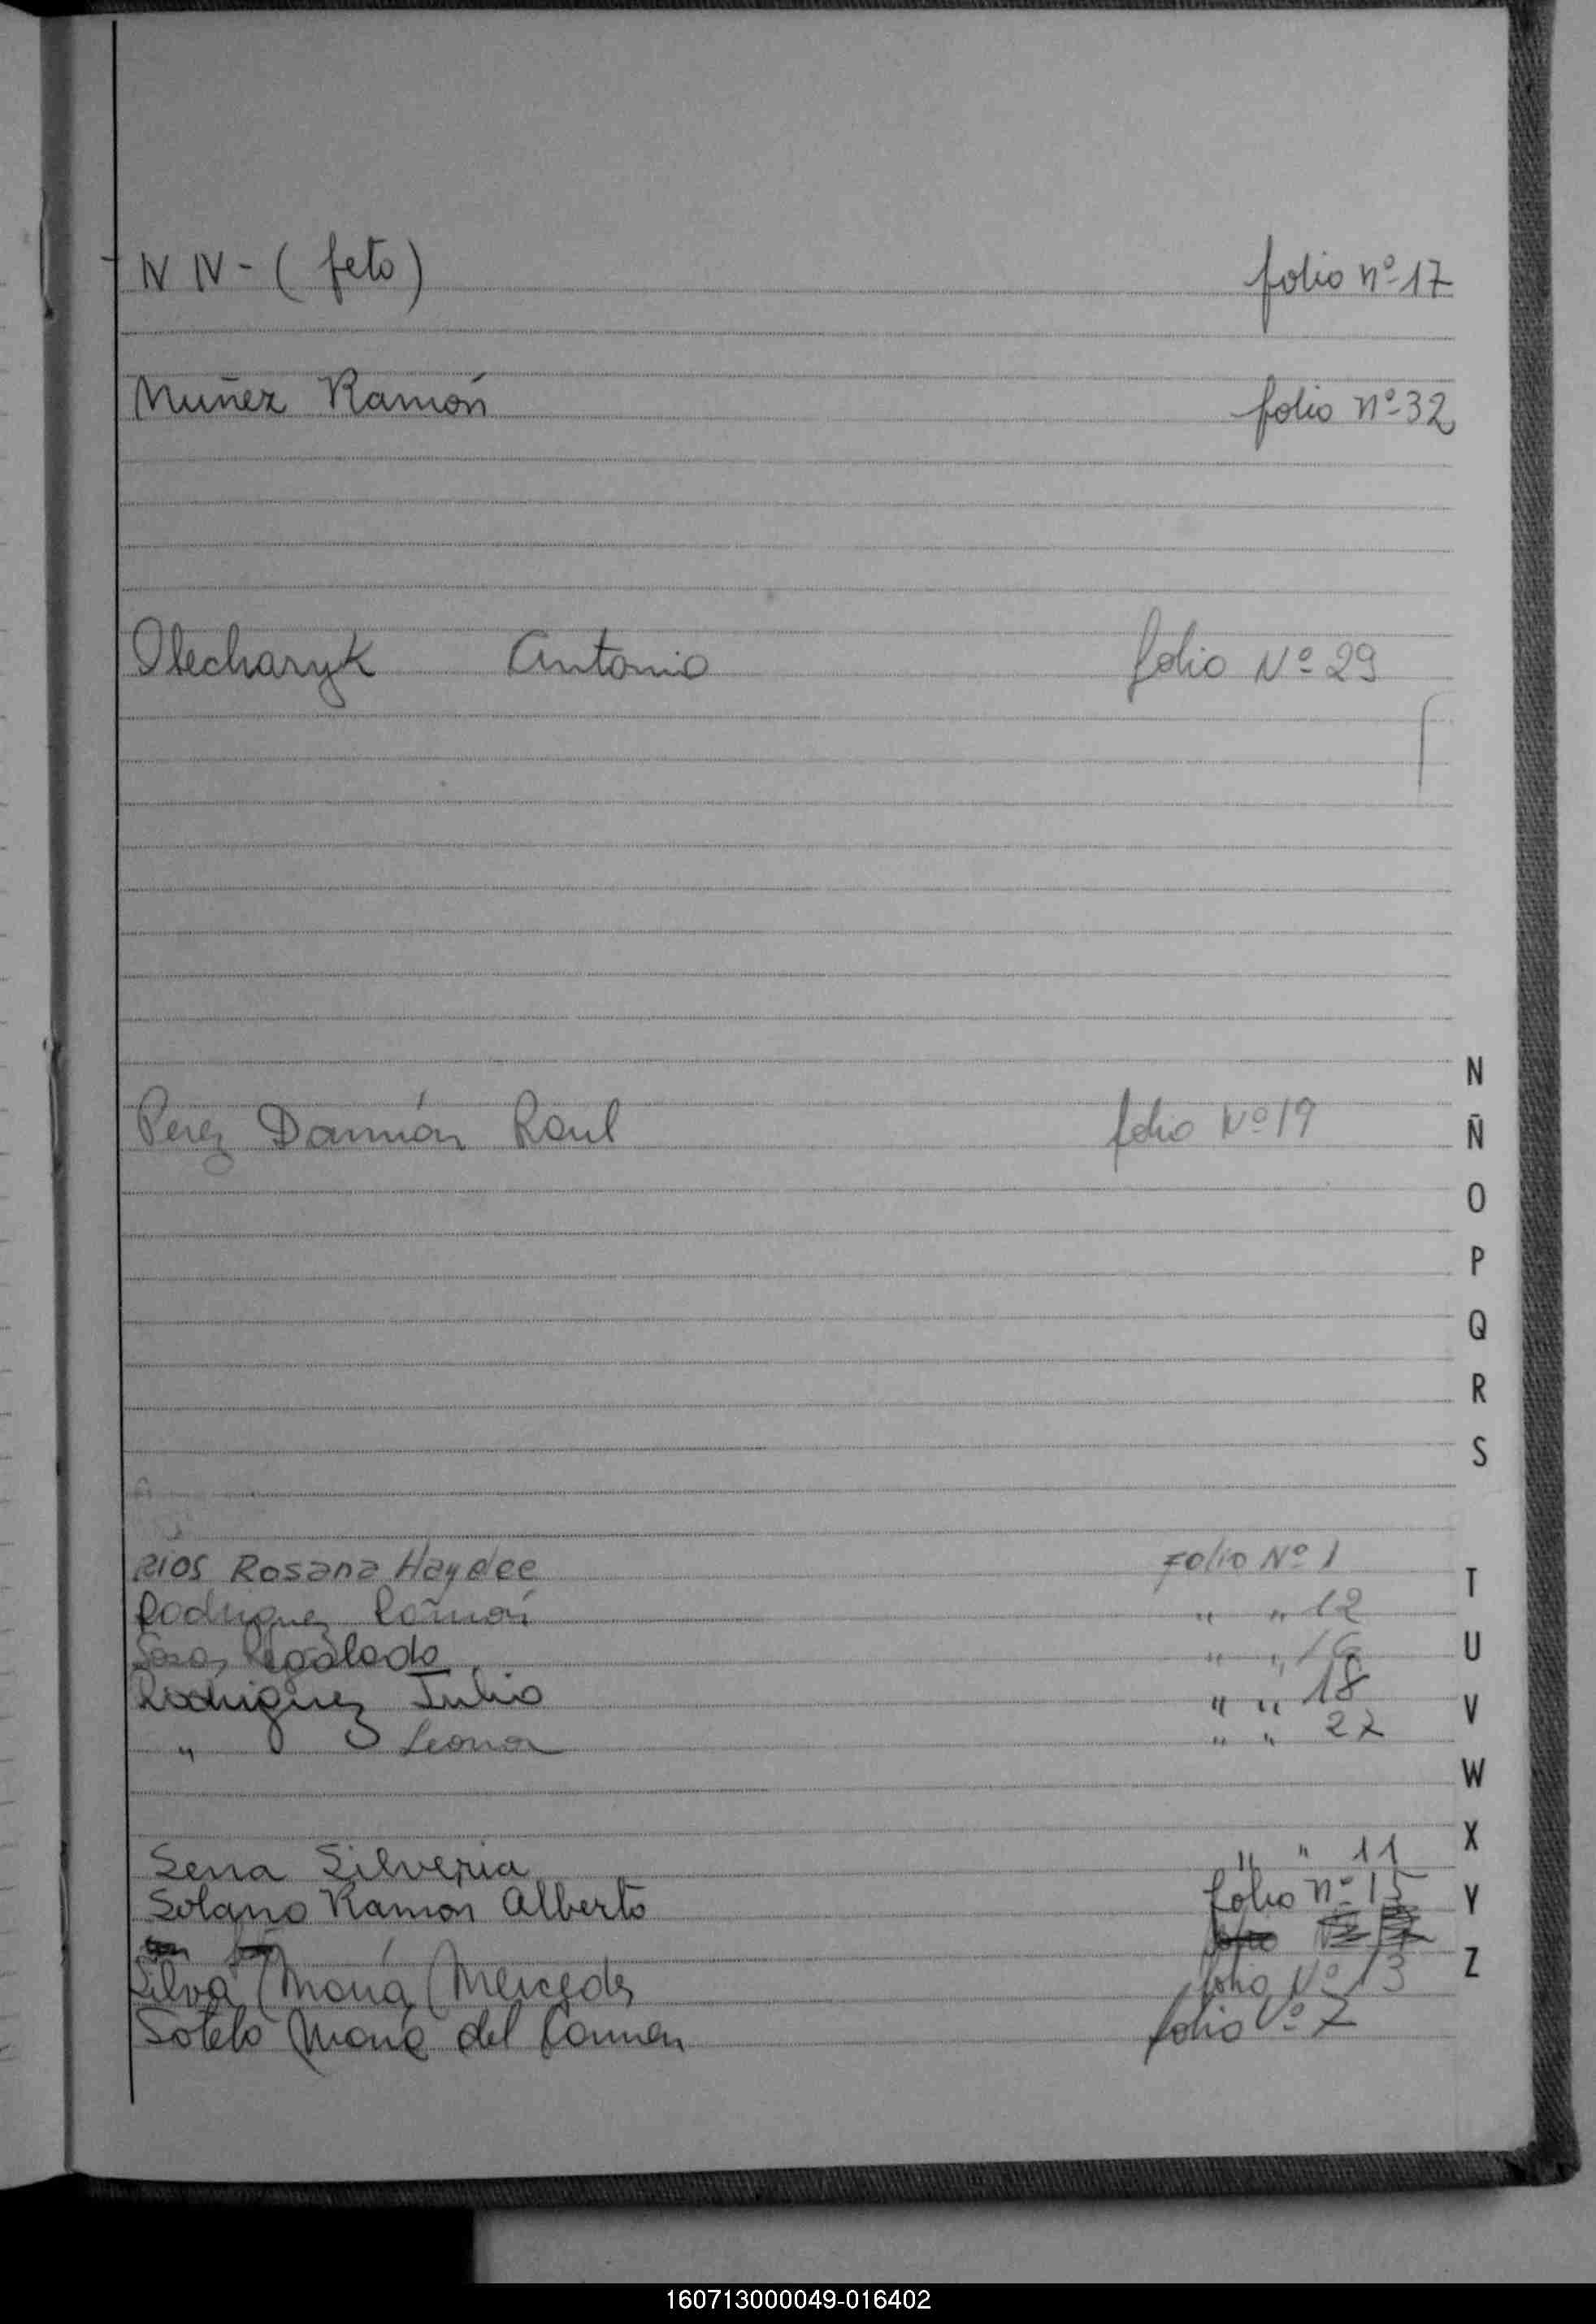 NN - (feto) folio nº 17
Nuñez Ramón folio nº 32
Olecharyk Antonio folio Nº 29
Perez Damián Raul folio Nº 19
N
Ñ
O
P
Q
R
S
Rios Rosana Haydee Folio Nº 1
Rodriguez Ramón " " 12
Regalado " " 16
Rodriguez Julio " " 18
" Leonor " " 22
T
U
V
W
X
Y
Z
Sena Silveria " " 11
Solano Ramon Alberto folio nº 15
Silva Maria Mercedes folio Nº 13
Sotelo Maria del Carmen folio Nº 7
160713000049-016402